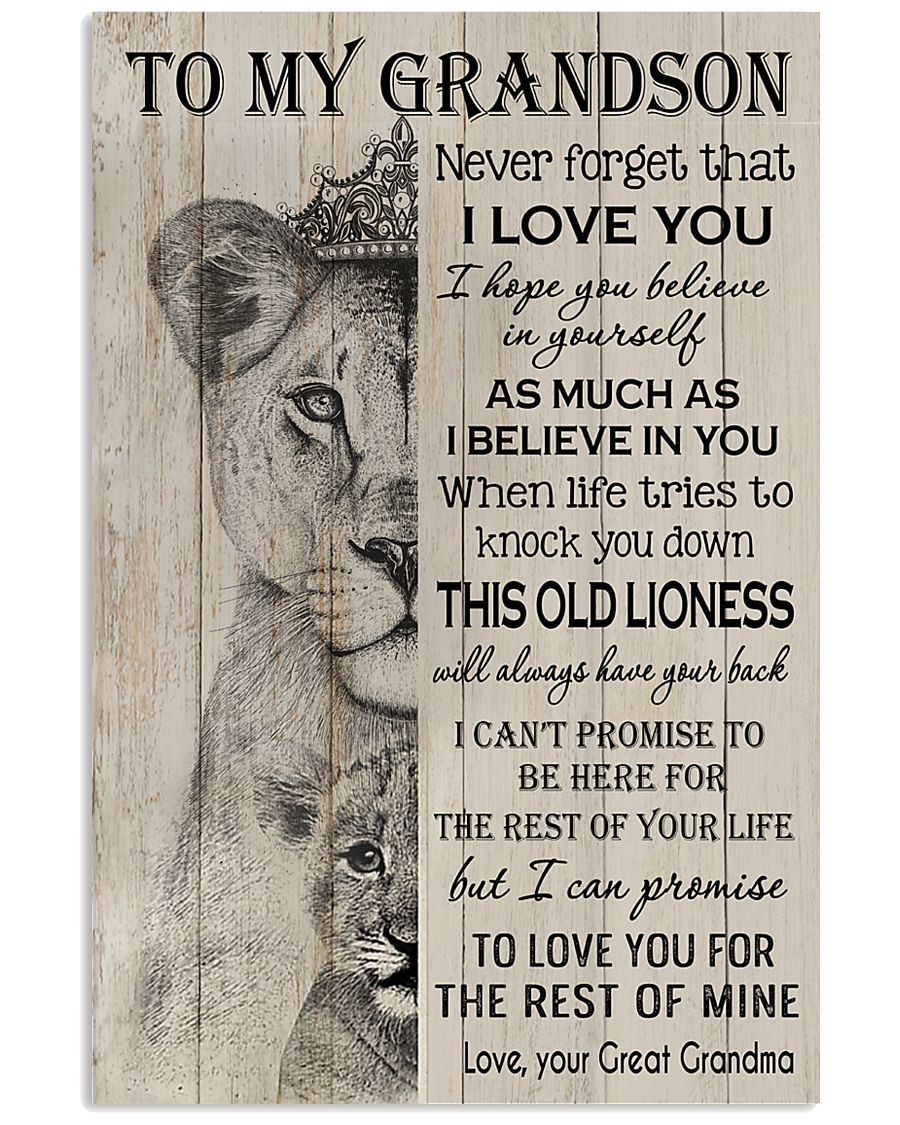 TO MY GRANDSON
Never forget that
I LOVE YOU
I hope you believe
in yourself
AS MUCH AS
I BELIEVE IN YOU
When life tries to
knock you down
THIS OLD LIONESS
will always have your back
I CAN'T PROMISE TO
BE HERE FOR
THE REST OF YOUR LIFE
but I can promise
TO LOVE YOU FOR
THE REST OF MINE
Love, your Great Grandma